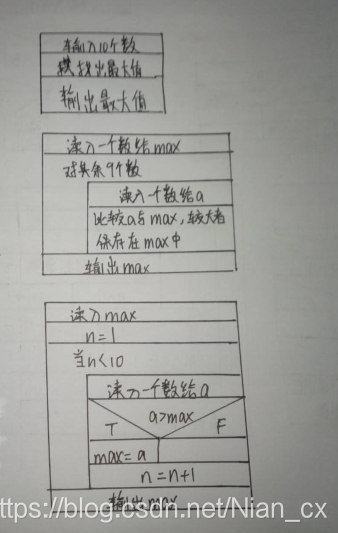 输入10个数
找出最大值
输出最大值
读入一个数给max
对其余9个数
读入一个数给a
比较a与max,较大者
保存在max中
输出max
读入max
n=1
当n<10
读入一个数给a
a>max
T
F
max=a
n=n+1
输出max
https://blog.csdn.net/Nian_cx